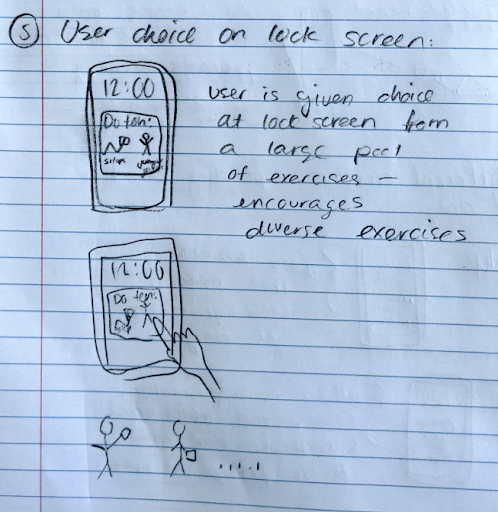 ⑤ User choice on lock screen:
12:00
Do ten:
situps
user is given choice
at lock screen from
a large pool
of exercises —
encourages
diverse exercises
12:00
Do ten:
......